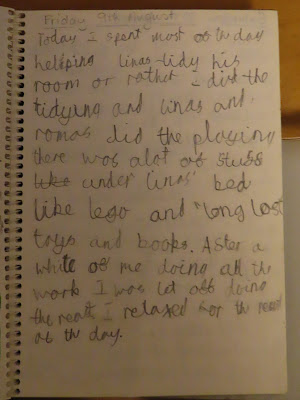 Friday 9th August
Today I spent most of the day
helping linas tidy his
room or rather I did the
tidying and linas and
romas did the playing
there was alot of stuff
like under linas' bed
like lego and "long lost
toys and books. After a
while of me doing all the
work I was let off doing
the rest I relaxed for the rest
of the day.